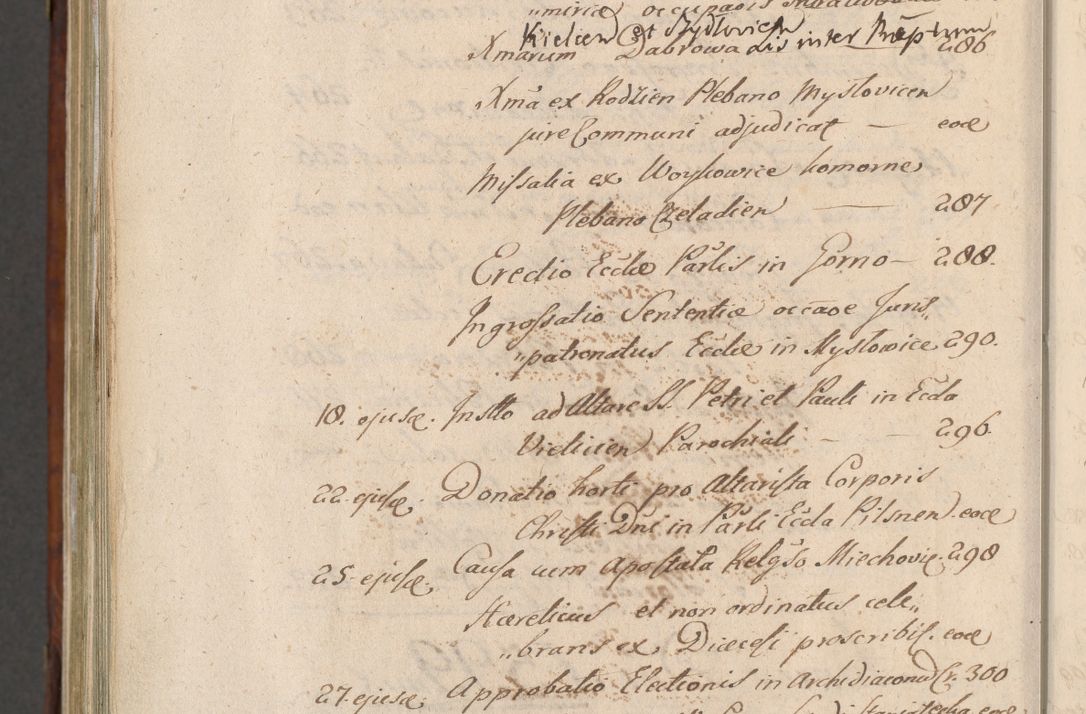 „miriæ occupaois
Kielcen et Szydlovien
Xmarum Dabrowa Lis inter Rńptum 286
Xmã ex Rodzien Plebano Myslovicen
jure Communi adjudicat — eoæ
Missalia ex Woykowice komorne
Plebano Czeladien — 287
Erectio Eccłæ Parlis in Gorno — 288.
Ingrossatio Sententiæ occãoe Juris„
„patronatus Eccłæ in Myslowice 290.
18. ejusæ. Instto ad Altare SS. Petri et Pauli in Eccła
Vielicien Parochiali — — 296.
22. ejusæ. Donatio horti pro Altarista Corporis
Christi Dni in Parli Eccla Pilsnen. eoæ
25. ejusæ. Causa cum Apostata Relgso Miechovie. 298
Hæreticus et non ordinatus cele„
„brans ex Diæcesi proscribis. eoæ
27. ejusæ. Approbatio Electionis in Archidiaconu Cr. 300